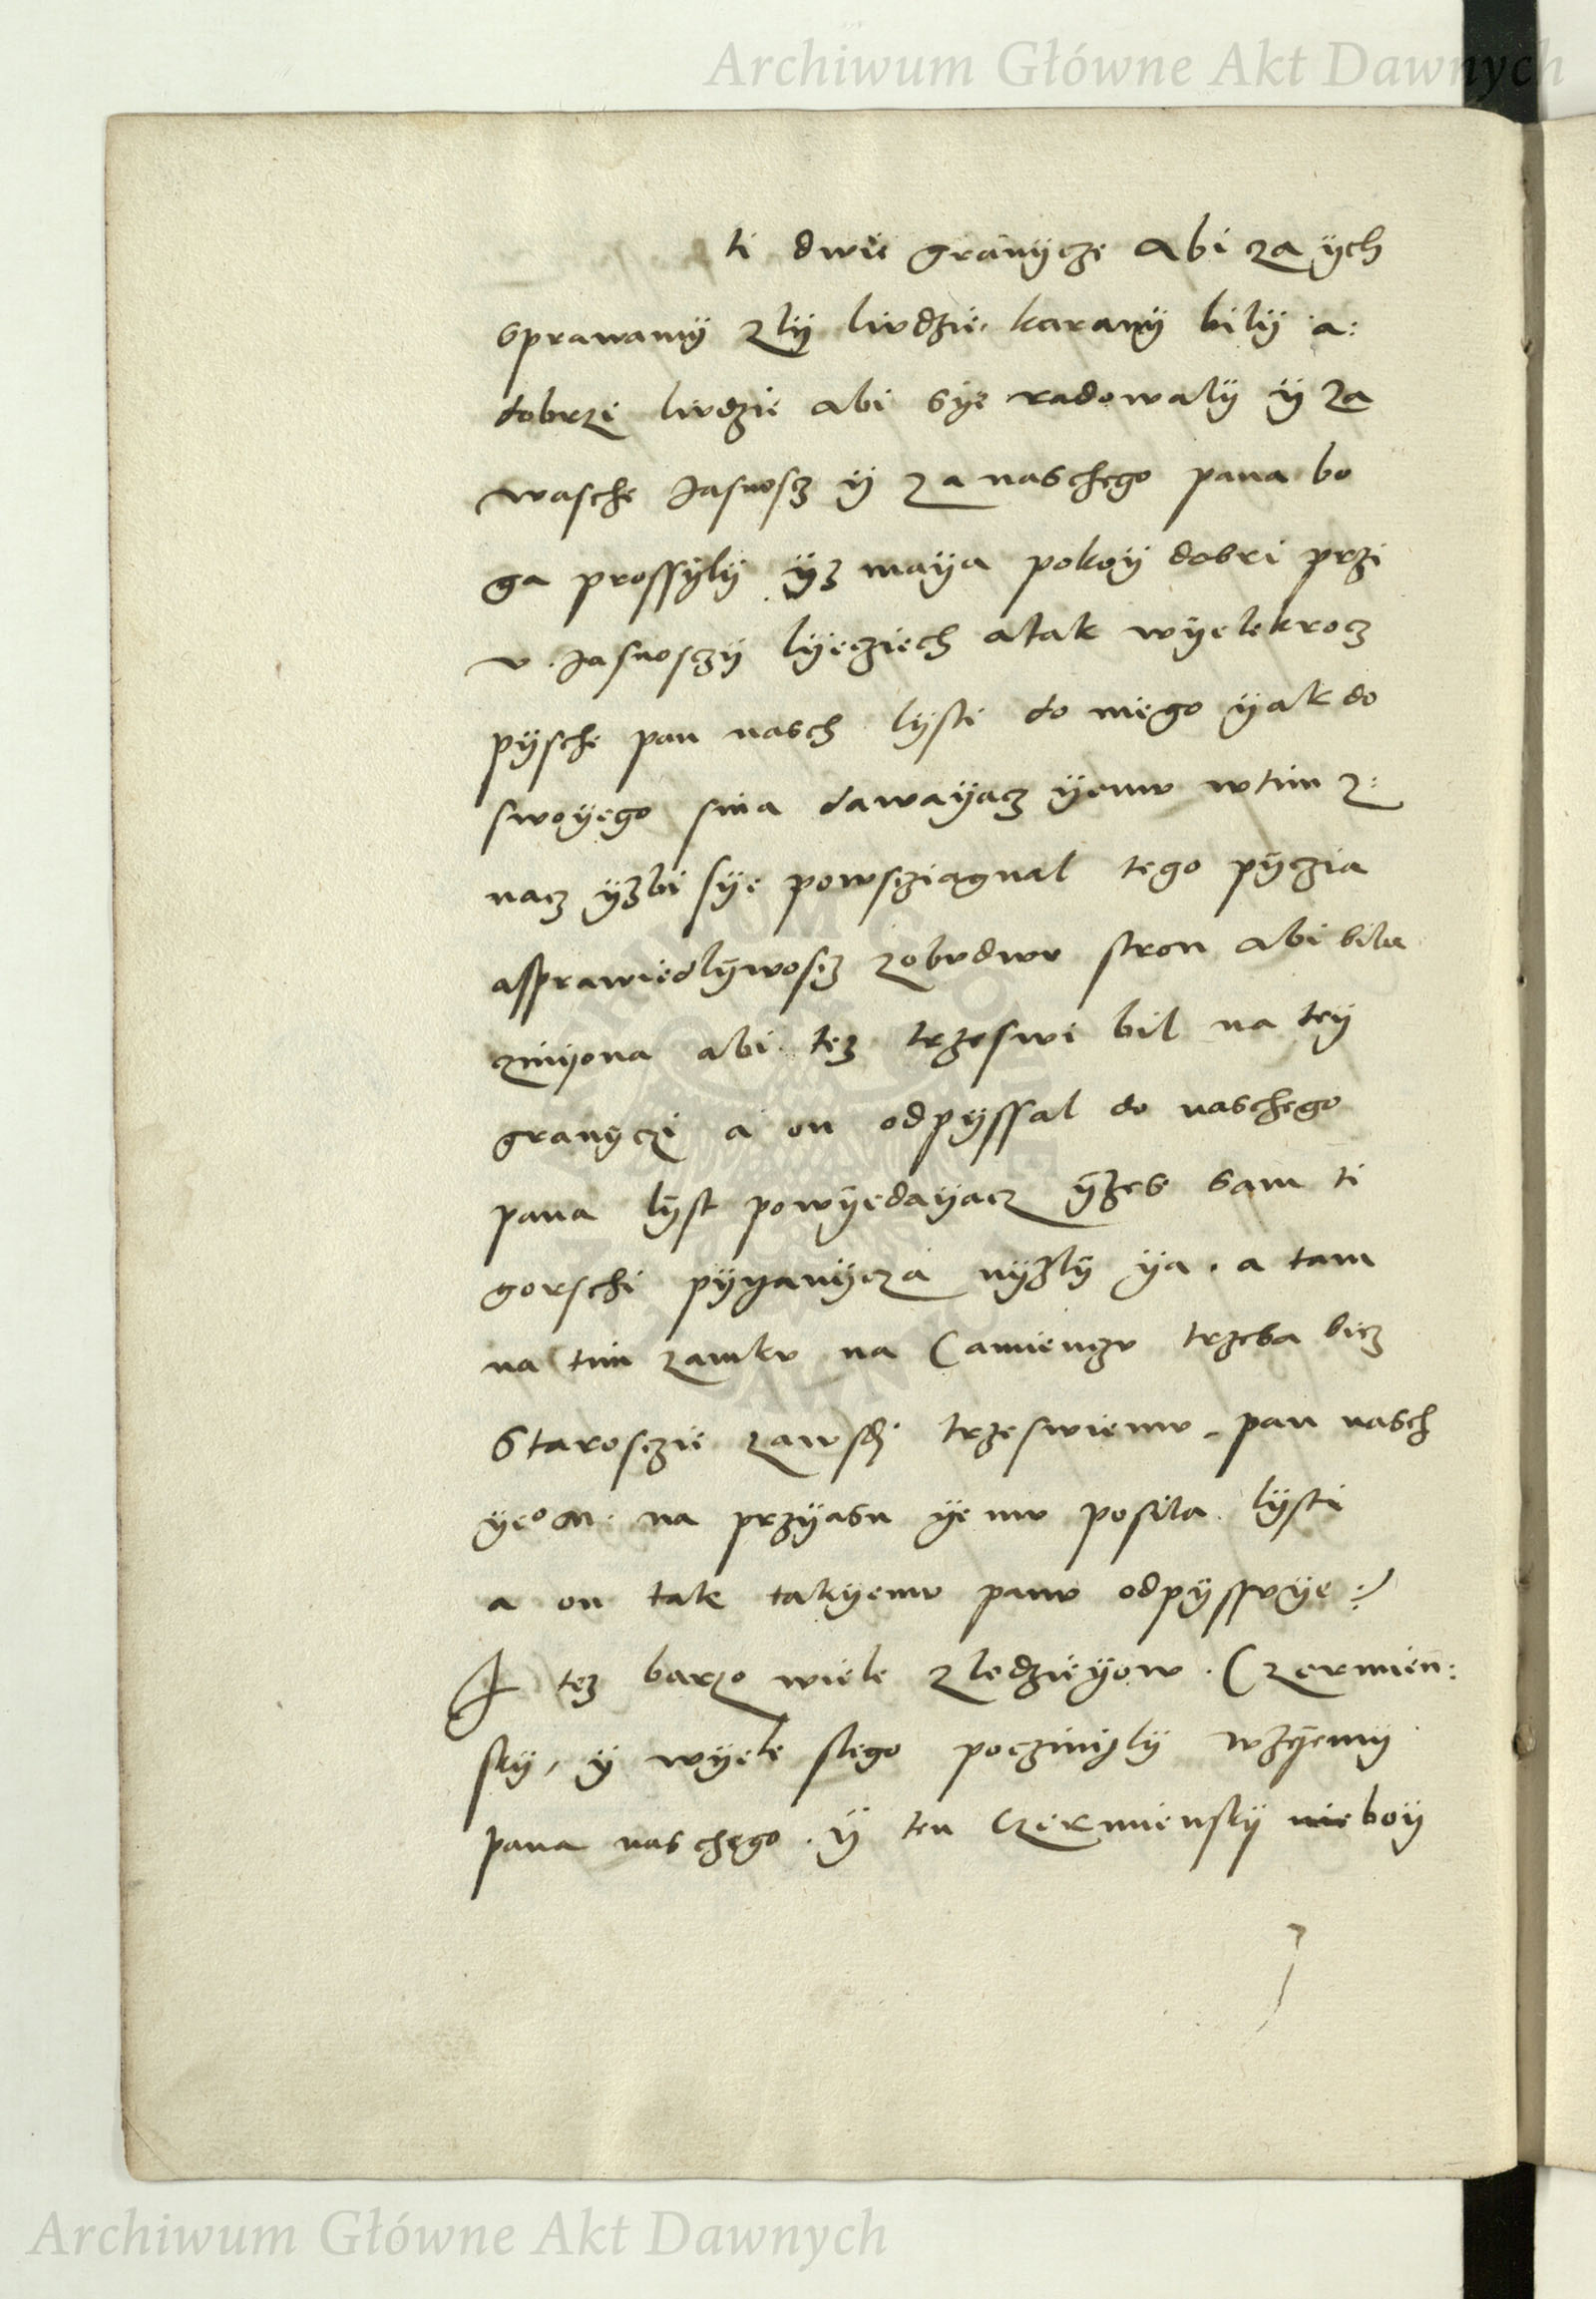 Archiwum Główne Akt Dawnych
ti dwie granÿcze abi za ÿch
sprawamÿ zlÿ liudzie karanÿ bilÿ a:
dobrzi liudzie abi sÿe radowalÿ ÿ za
wasche Jasnoscz ÿ za naschego pana bo
ga prossÿlÿ ÿz maÿa pokoÿ dobri przi
v. Jasnosczÿ lÿecziech a tak wÿelekrocz
pÿsche pan nasch lÿsti do niego ÿak do
swoÿego sina dawaÿacz ÿemv wtim z:
nacz ÿzbi sÿe powscziagnal tego pÿczia
asprawiedlÿwoscz zobvdwv stron abi bila
czinÿona abi tez trzeswi bil na teÿ
granÿczi a on odpÿssal do naschego
pana lÿst powÿedaÿacz ÿzes sam ti
gorschi pÿÿanÿcza nÿzlÿ ÿa. a tam
na tim zamkv na Camienczv trzeba bicz
Starosczie zawsdi trzeswiemv pan nasch
ÿeº M. na przÿasn ÿemv posila lÿsti
a on tak takÿemv panv odpÿssvÿe:/
A tez barzo wiele zlodzieÿow. Czermien:
skÿ, ÿ wÿele slego poczinÿlÿ wzÿemÿ
pana naschego. ÿ ten Czermienskÿ nie boÿ
Archiwum Główne Akt Dawnych